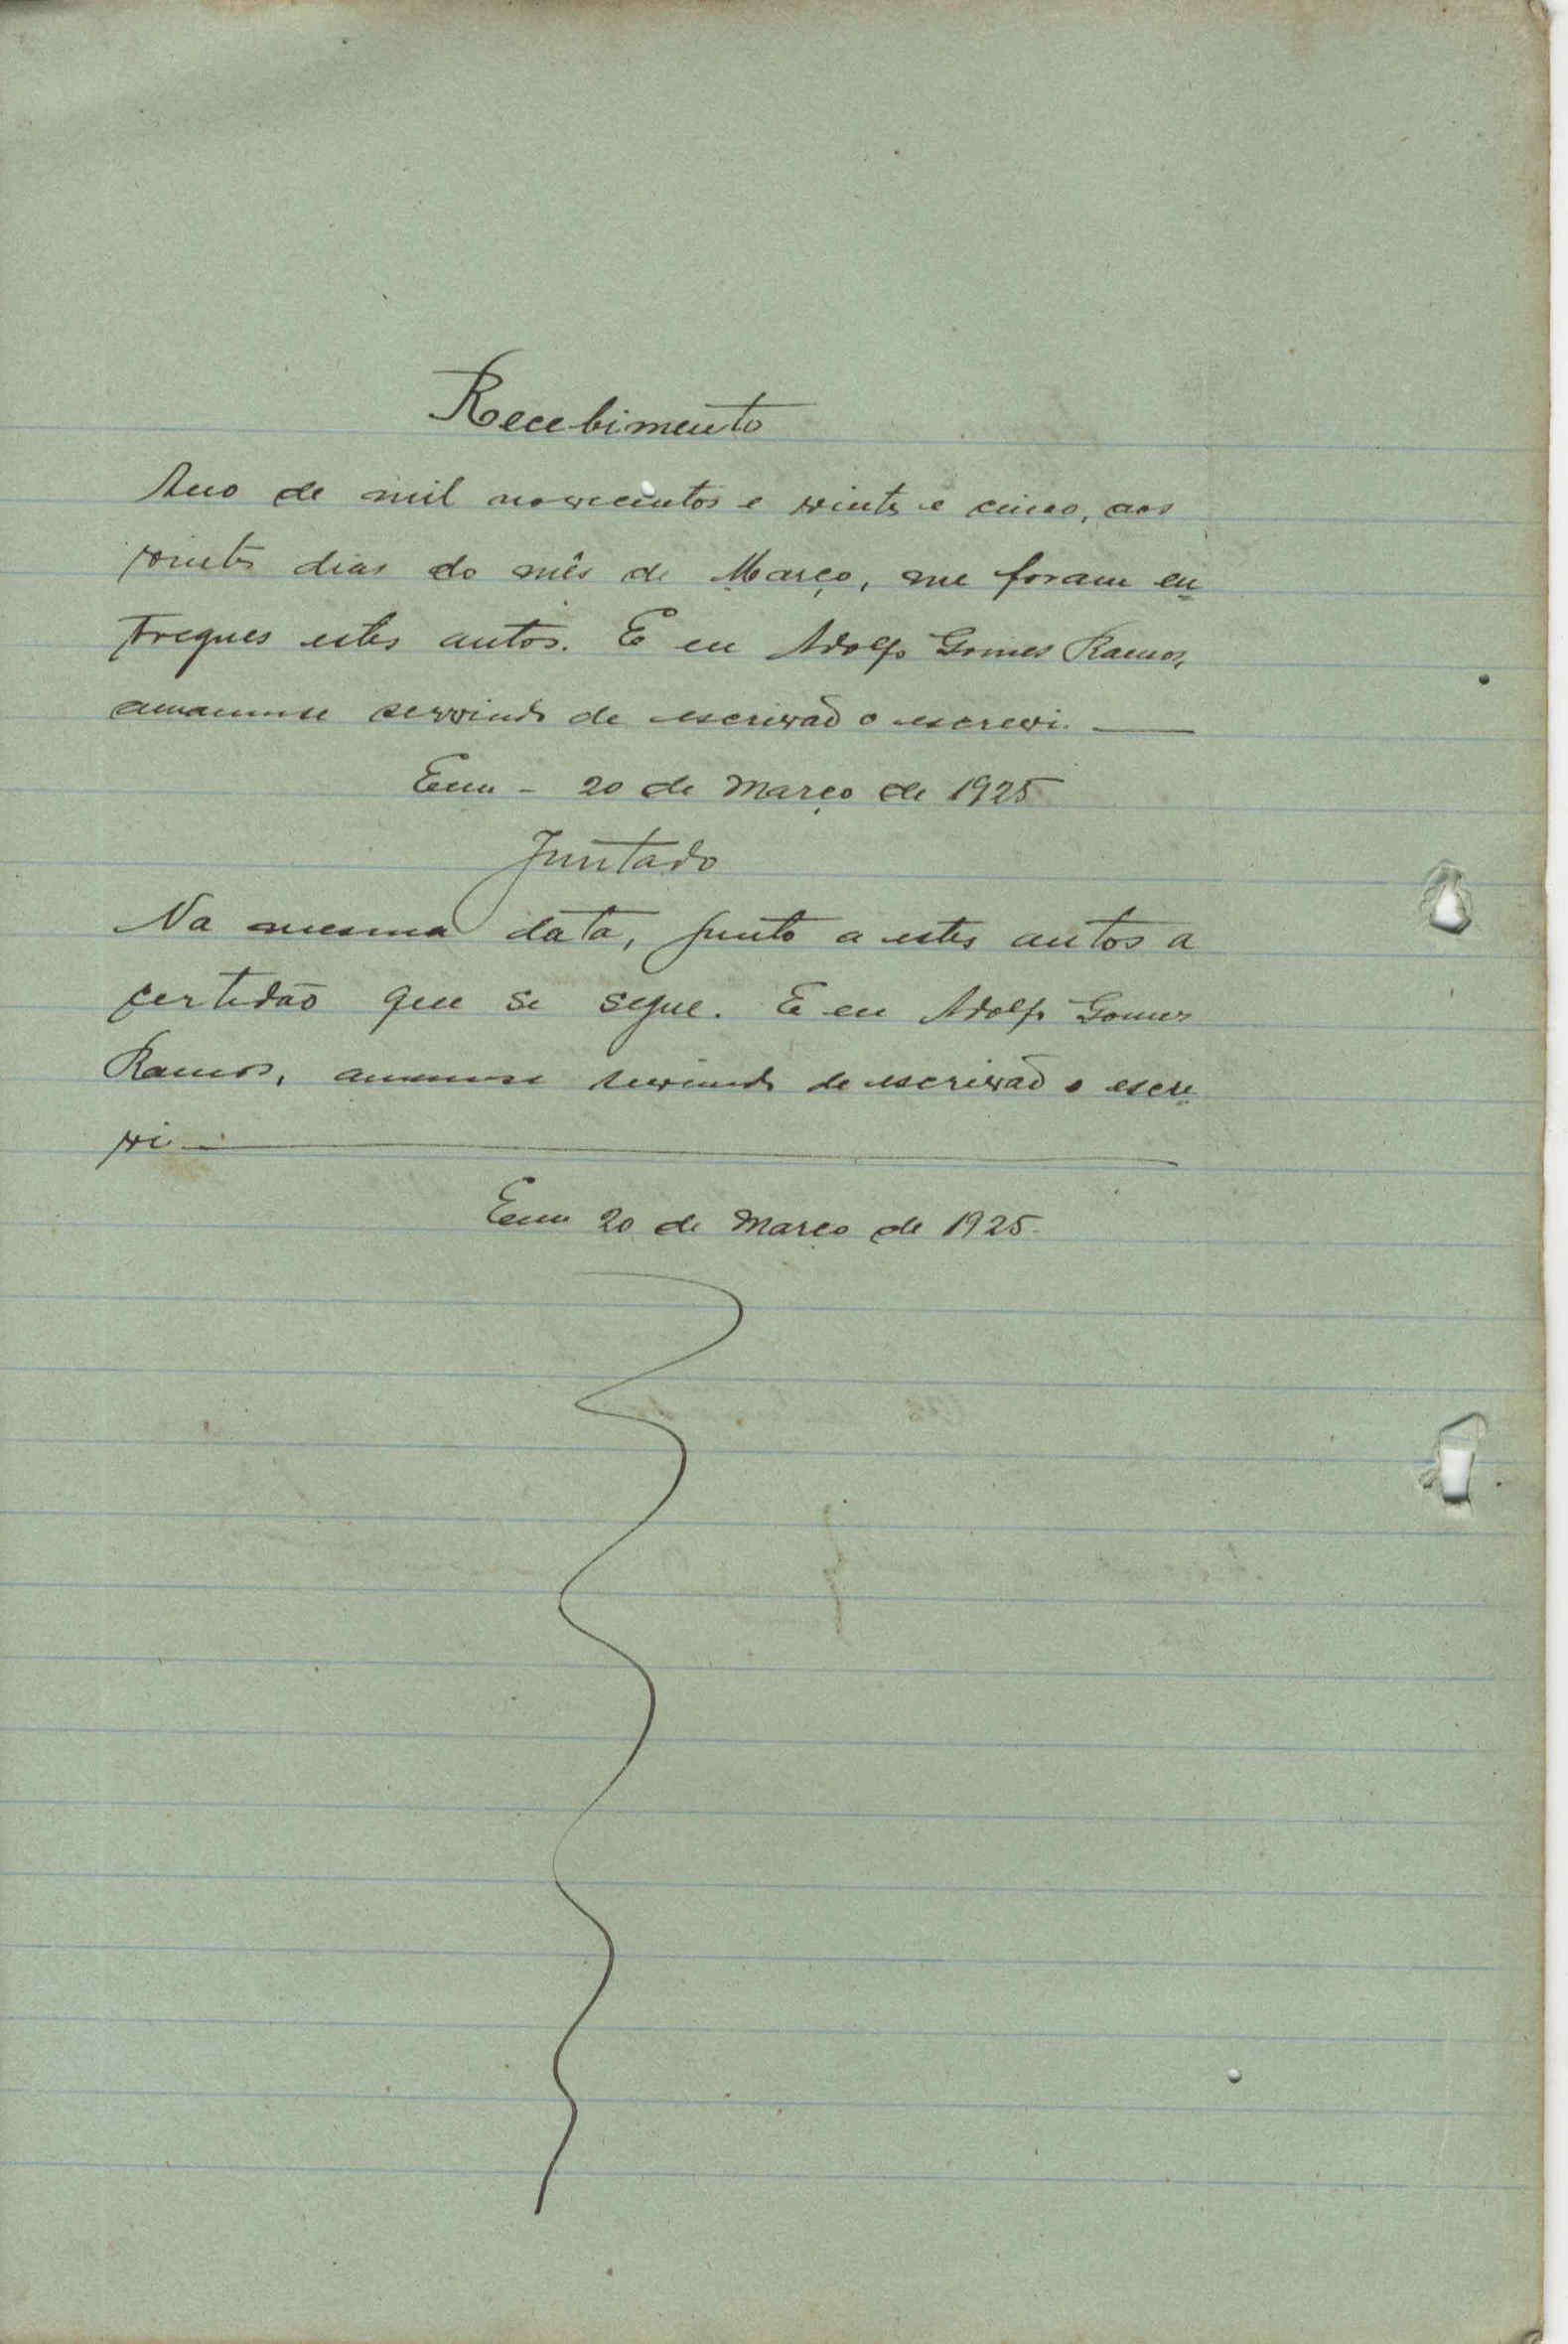 Recebimento
Ano de mil novecentos e vinte e cinco, aos
vinte dias do mês de Março, me foram en=
tregues estes autos. E eu Adolfo Gomes Ramos,
amanuense servindo de escrivão o escrevi.
Em - 20 de Março de 1925
Juntado
Na mesma data, junto a estes autos a
certidão que se segue. E eu Adolfo Gomes
Ramos, amanuense servindo de escrivão o escre=
vi
Em 20 de Março de 1925.